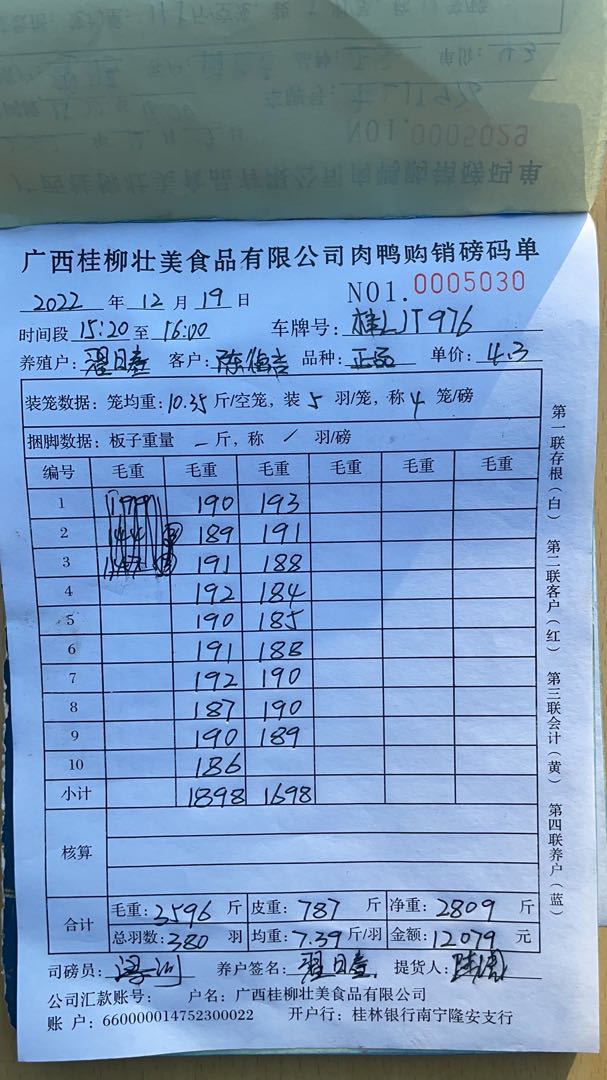 NO1.0005029
广西桂柳壮美食品有限公司肉鸭购销磅码单
广西桂柳壮美食品有限公司肉鸭购销磅码单
2022 年 12 月 19 日 NO1.0005030
时间段 15:20 至 16:00 车牌号: 桂LJT976
养殖户: 客户: 品种: 正品 单价: 4.3
装笼数据: 笼均重: 10.35 斤/空笼, 装 5 羽/笼, 称 4 笼/磅
捆脚数据: 板子重量 — 斤, 称 / 羽/磅
编号 毛重 毛重 毛重 毛重 毛重 毛重
1 190 193
2 189 191
3 191 188
4 192 184
5 190 185
6 191 188
7 192 190
8 187 190
9 190 189
10 186
小计 1898 1698
核算
合计 毛重: 3596 斤 皮重: 787 斤 净重: 2809 斤
总羽数: 380 羽 均重: 7.39 斤/羽 金额: 12079 元
司磅员: 养户签名: 提货人:
公司汇款账号: 户名: 广西桂柳壮美食品有限公司
账 户: 660000014752300022 开户行: 桂林银行南宁隆安支行
第一联存根(白) 第二联客户(红) 第三联会计(黄) 第四联养户(蓝)